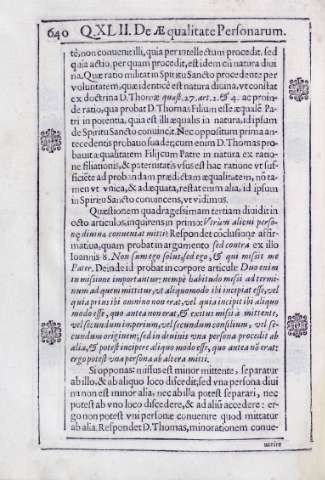 640 Q. XLII. De Æqualitate Personarum.
tẽ, non convenit illi, quia per intellectum procedit, sed
quia actio, per quam procedit, est idem cũ natura divi
na. Quæ ratio militat in Spiritu Sancto procedente per
voluntatem, quæ identicè est natura divina, vt constat
ex doctrina D. Thomæ quæst. 27. art. 1. & 4. ac proin-
de ratio, qua probat D. Thomas Filium esse æqualẽ Pa-
tri in potentia, quia est illi æqualis in natura, id ipsum
de Spiritu Sancto convincit. Nec oppositum prima an-
tecedentis probatio suadet; cum enim D. Thomas pro-
bavit æqualitatem Filij cum Patre in natura ex ratio-
ne filiationis, & paternitatis vsus est hac ratione vt suf-
ficiẽte ad probandam prædictam æqualitatem, nõ ta-
men vt vnica, & adæquata, restat enim alia, id ipsum
in Spiritu Sancto convincens, vt vidimus.
Quæstionem quadragesimam tertiam dividit in
octo articulos, inquirens in primo: Vtrùm alicui perso-
næ divinæ conveniat mitti? Respondet cõclusione affir-
mativa, quam probat in argumento sed contra ex illo
Ioannis 8. Non sum ego solus, sed ego, & qui misit me
Pater. Deinde id probat in corpore articuli: Duo enim
in missione importantur; nempè habitudo missi ad termi-
num ad quem mittitur, vt aliquo modo ibi incipiat esse, vel
quia prius ibi omninò non erat, vel quia incipit ibi aliquo
modo esse, quo antea non erat, & exitus missi à mittente,
vel secundum imperium, vel secundum consilium, vel se-
cundum originem; sed in divinis vna persona procedit ab
alia, & potest incipere aliquo modo esse, quo antea nõ erat;
ergo potest vna persona ab altera mitti.
Si opponas: missus est minor mittente, separatur
ab illo, & ab aliquo loco discedit, sed vna persona divi
na non est minor alia, nec ab illa potest separari, nec
potest ab vno loco discedere, & ad aliũ accedere: er-
go non potest vni personæ convenire quod mittatur
ab alia. Respondet D. Thomas, minorationem conve-
nire